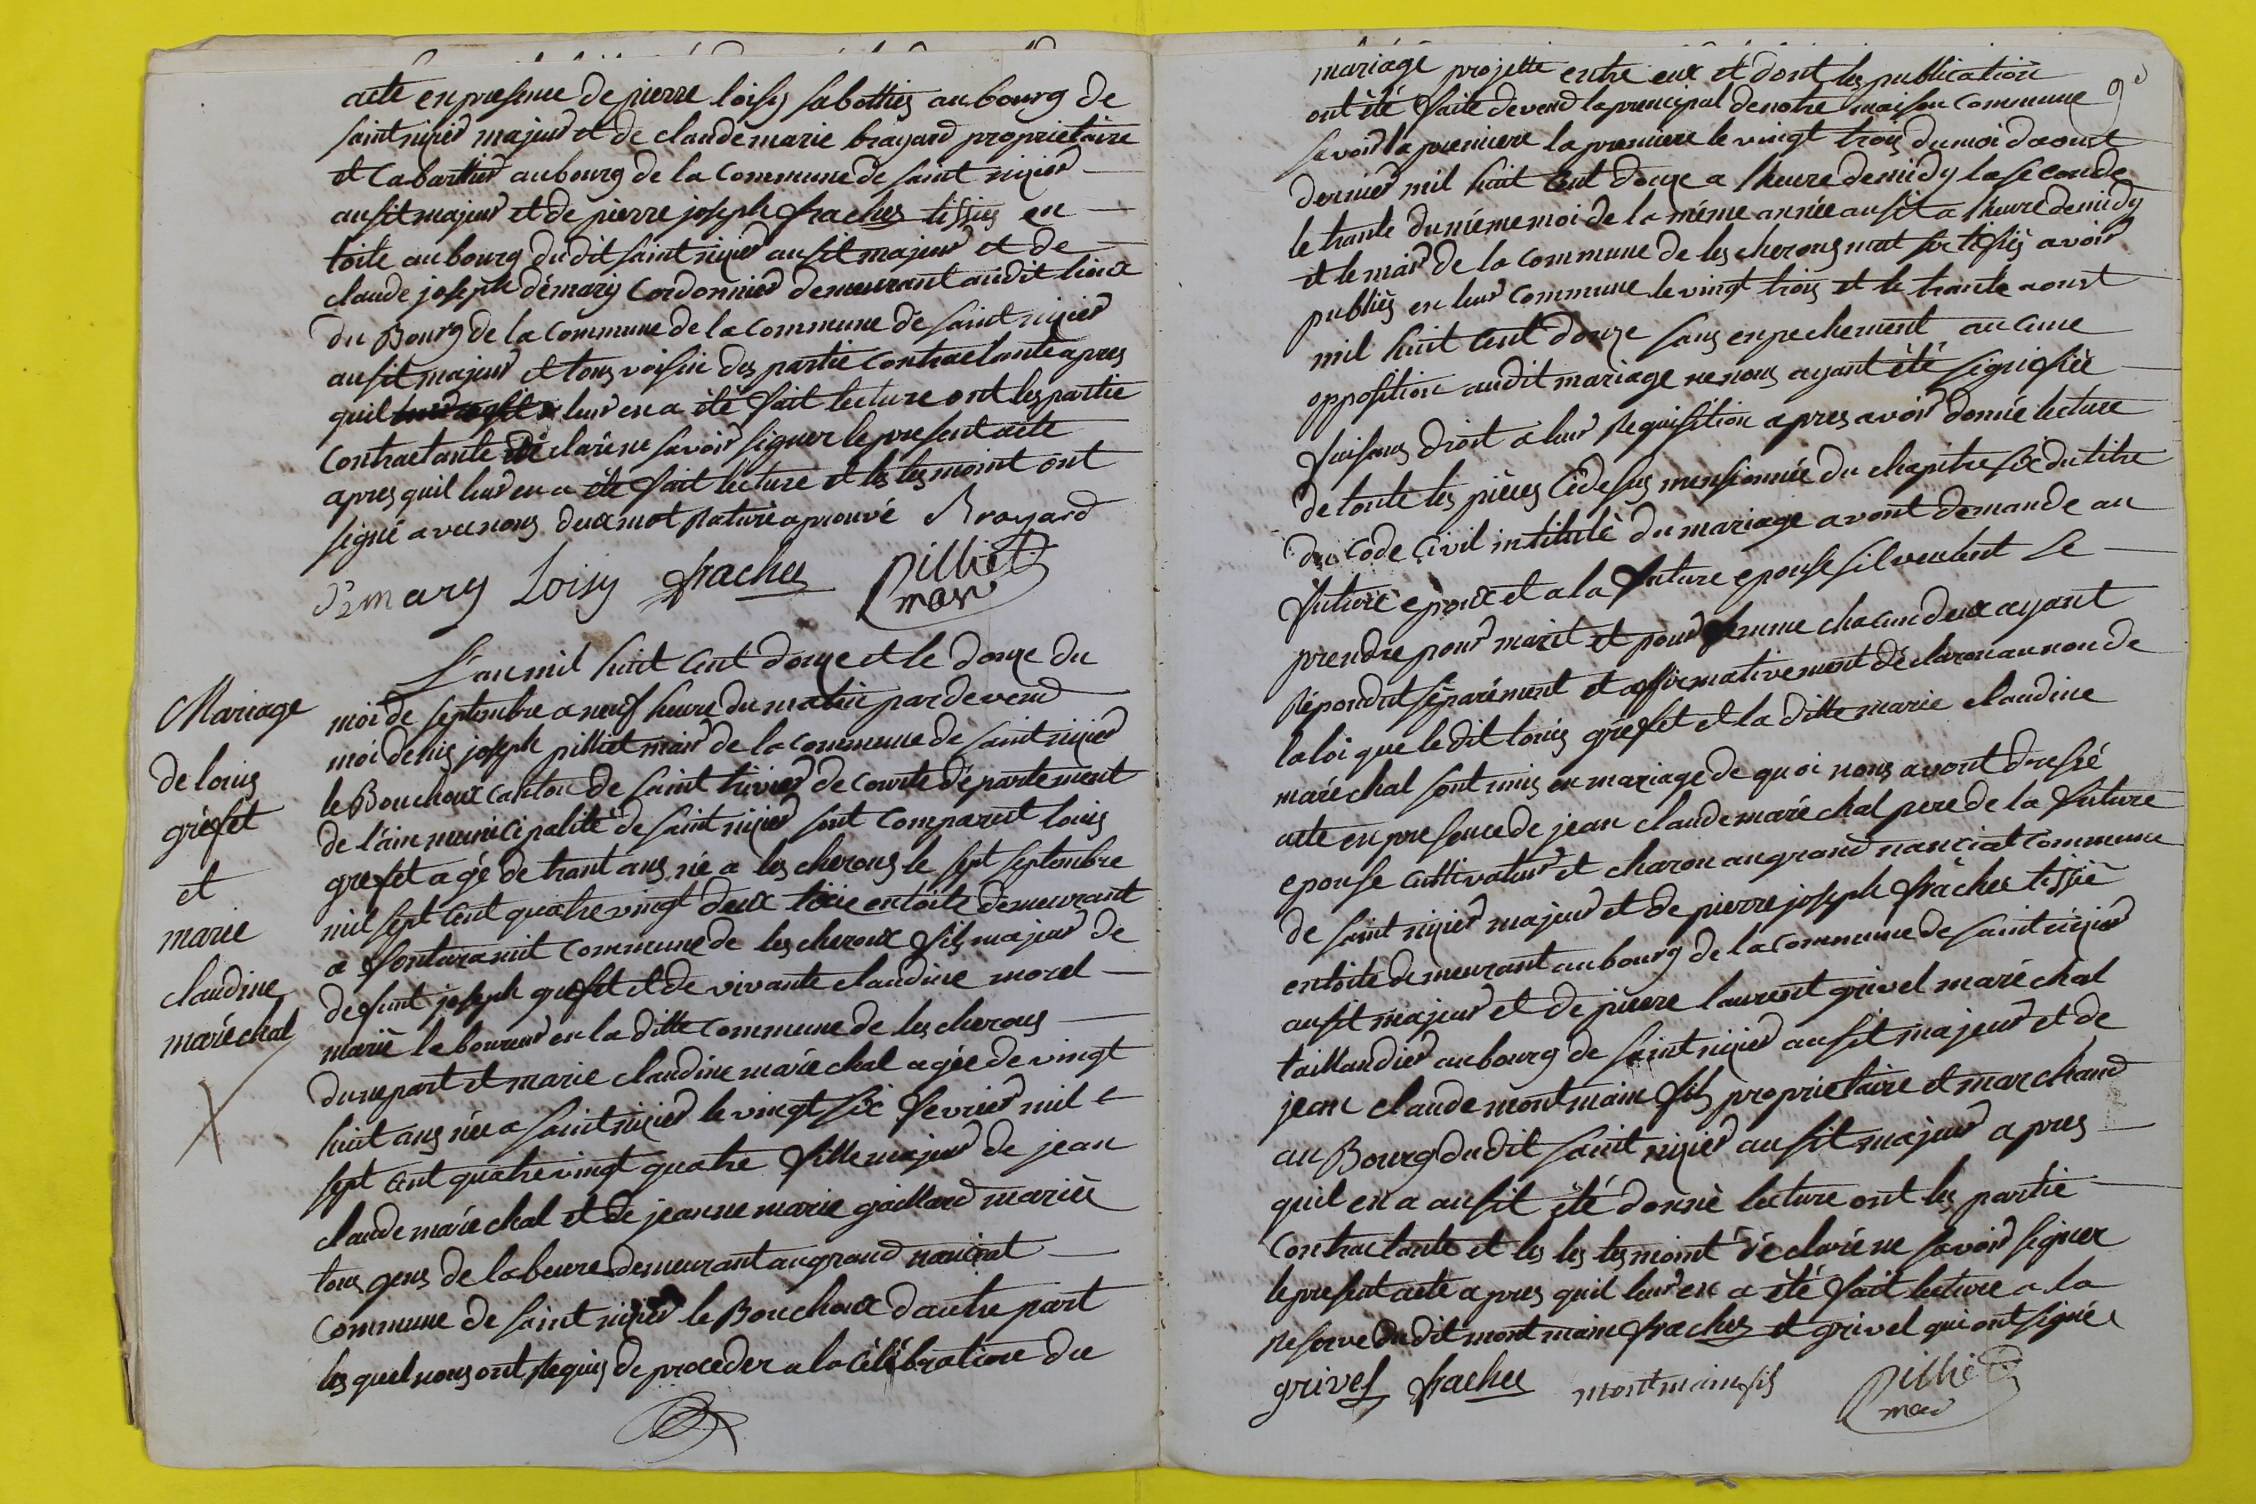 acte en presence de pierre loisy sabotties au bourg de
saint nizier majeur et de claude marie brayard proprietaire
et Cabarttier au bourg de la Commune de saint nizier
ausit majeur et de pierre joseph frachet tissies en
toite au bourg du dit saint nizier ausit majeur et de
claude joseph démary Cordonnier demeurant audit lieux
du Bourg de la Commune de la commune de saint nizier
ausit majeur et tous voisin des partie Contractante apres
quil leur en a été fait lecture ont les partie
Contractante déclaré ne savoir signer le present acte
apres quil leur en a été fait lecture et les tesmoint ont
signé avec nous deux mot raturé aprouvé Brayard
démary Loisy frachet pilliet
mair
L'an mil huit cent douze et le douze du
Mariage
de louis
gréfet
et
marie
claudine
maréchal
moi de septembre a neuf heure du matin par devend
moi denis joseph pilliet mair de la commune de saint nizier
le Bouchoux canton de saint trivier de courte département
de l'ain municipalité de saint nizier sont comparut louis
grefet agé de trant ans né a les cherous le sept septembre
mil sept cent quatre vingt deux tissie en toite demeurant
a commune de les cheroux fils majeur de
defunt joseph grefet et de vivante claudine morel
marié laboureur en la ditte commune de les cherous
dune part et marie claudine maréchal agée de vingt
huit ans née a saint nizier le vingt six fevrier mil
sept cent quatre vingt quatre fille majeur de jean
claude maréchal et de jeanne marie gaillard mariés
tous gens de labeure demeurant au grand nanciat
Commune de saint nizier le Bouchoux d'autre part
les quel nous ont requis de proceder a la célébratione du
mariage projette entre eux et dont les publication
ont été faite devend la principal de notre maison commune
savoir la premiere la premiere le vingt trois du moi daoust
dernier mil huit cent douze a lheure de midy la seconde
le trante du méme moi de la méme année ausit a lheure de midy
et le mair de la commune de les cherous mat sertifiés avoir
publiés en leur commune le vingt trois et le trante aoust
mil huit cent douze sans enpechement aucune
opposition audit mariage ne nous ayant été signifiée
faisans droit a leur requisition apres avoir donné lecture
de toute les pièces cidesus mensionnée du chapitre six du titre
du Code Civil intitulé du mariage avont demande au
future epoux et a la future epouse sil veulent se
prendre pour marit et pour femme chacun deux ayant
répondut séparément et affirmativement déclaron au non de
la loi que le dit louis gréfet et la ditte marie claudine
maréchal sont unis en mariage de quoi nous avont dressé
acte en presence de jean claude maréchal pere de la future
epouse cultivateur et charon au grand nanciat commune
de saint nizier majeur et de pierre joseph frachet tissié
en toite demeurant au bourg de la commune de saint nizier
ausit majeur et de pierre laurent grivel maréchal
taillandier au bourg de saint nizier ausit majeur et de
jean claude montmain fils proprietaire et marchand
au Bourg du dit saint nizier ausit majeur apres
quil en a ausit été donné lecture ont les partie
Contractante et les les tesmoint déclaré ne savoir signer
le present acte apres quil leur en a été fait lecture a la
reserve du dit montmain frachet et grivel qui ont signé
grivel frachet montmain fils pilliet
mair